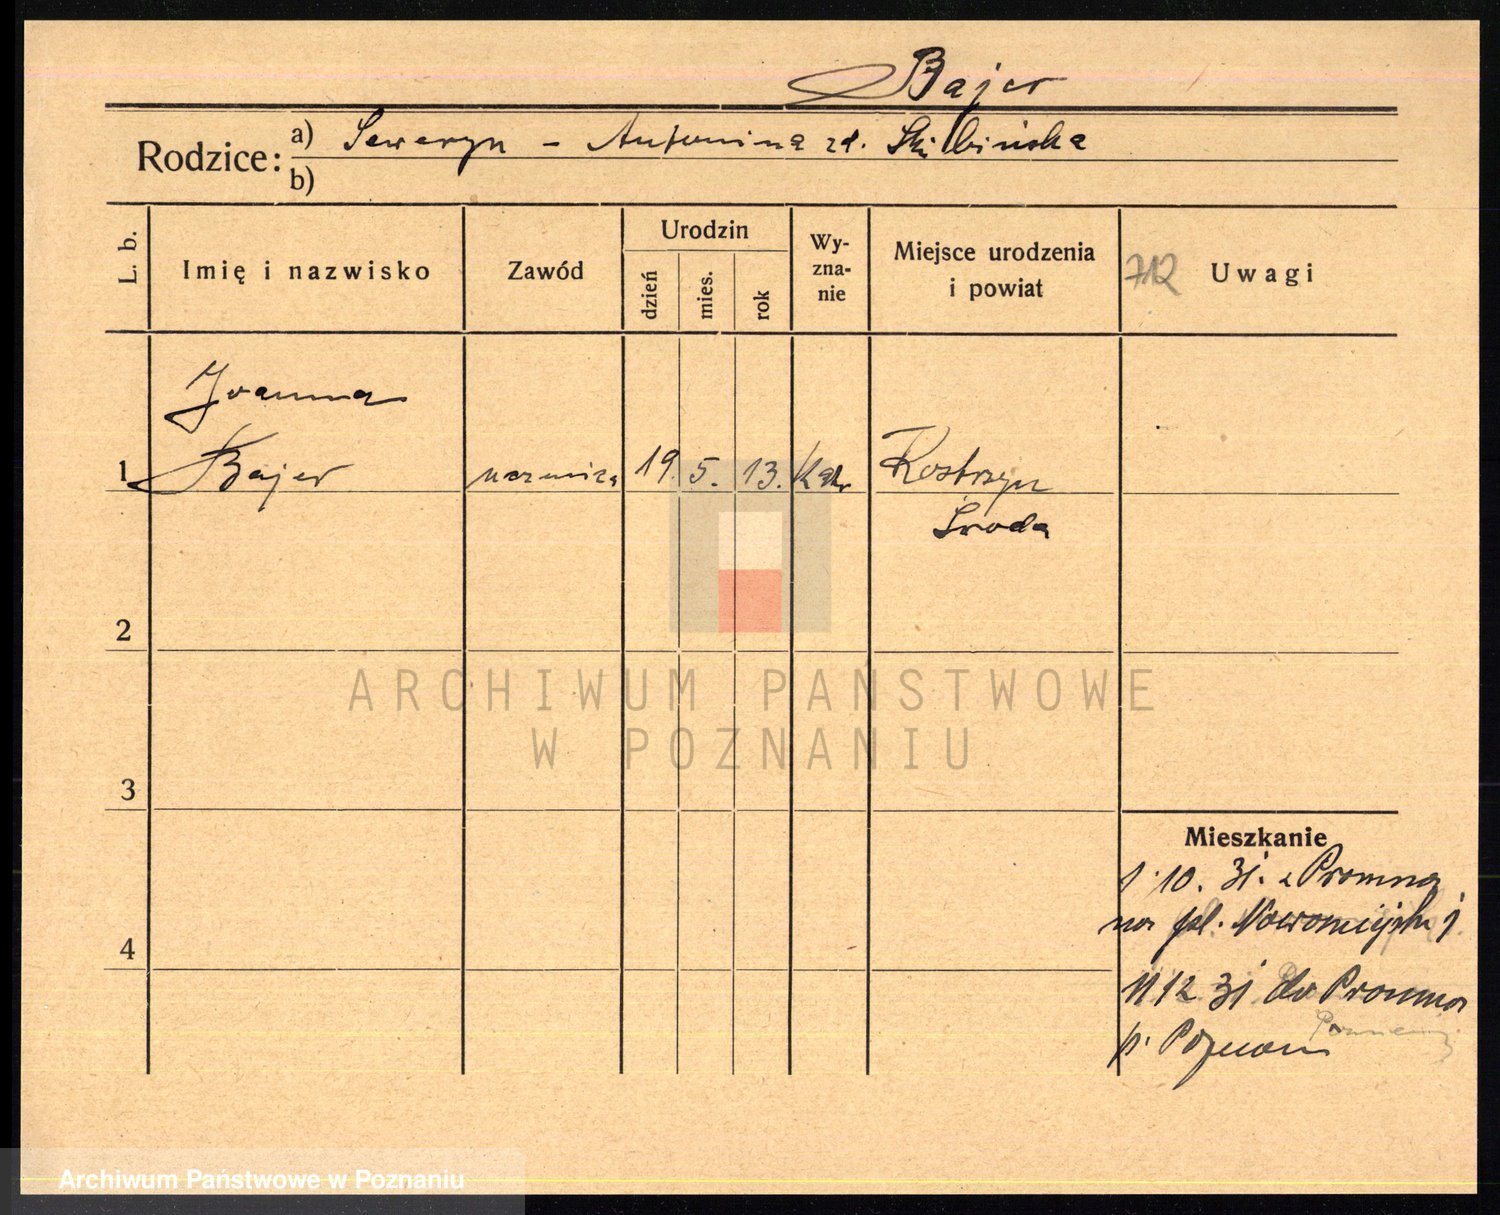 Bajer
Rodzice: a) Seweryn – Antonina zd. Skibińska
b)
L. b.
Imię i nazwisko
Zawód
Urodzin
dzień
mies.
rok
Wy-
zna-
nie
Miejsce urodzenia
i powiat
712 Uwagi
Joanna
1 Bajer uczenica 19. 5. 13. Kat. Kostrzyn
Środa
2
ARCHIWUM PAŃSTWOWE
W POZNANIU
3
Mieszkanie
1.10. 31. z Promna
na pl. Nowomiejski
4
11 12 31 do Promna
p. Poznań
Archiwum Państwowe w Poznaniu